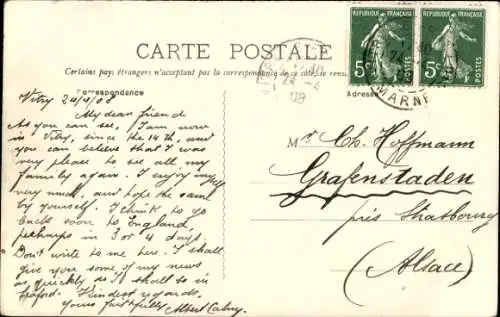 RÉPUBLIQUE FRANÇAISE RÉPUBLIQUE FRANÇAISE
5c POSTES 5c POSTES
MARNE
CARTE POSTALE
Certains pays étrangers n'acceptent pas la correspondance de ce côté, le rens
Correspondance
Adresse
Vitry 24/4/08
My dear friend
As you can see, I am now
in Vitry, since the 14th, and
you can believe that I was
very please to see all my
family again. I enjoy myself
very much, and hope the same
by yourself. I think to go
back soon to England,
perhaps in 3 or 4 days.
Don't write to me here. I shall
give you some of my news
as quickly as I shall be in
. Kindest regards.
Yours faithfully
Albert
Mr Ch. Hoffmann
Grafenstaden
près Strasbourg
(Alsace)